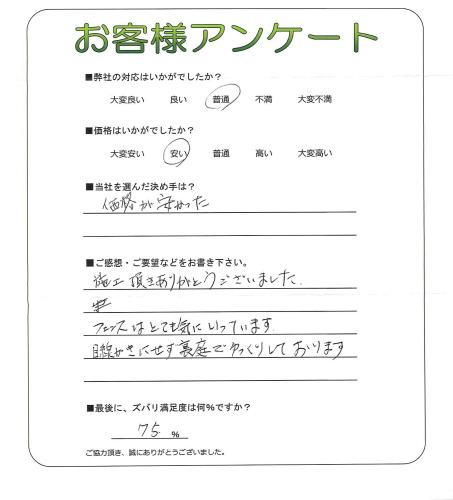 お客様アンケート
■弊社の対応はいかがでしたか?
大変良い 良い 普通 不満 大変不満
■価格はいかがでしたか?
大変安い 安い 普通 高い 大変高い
■当社を選んだ決め手は?
価格が安かった
■ご感想・ご要望などをお書き下さい。
施工頂きありがとうございました.
フェンスはとても気にいっています.
目線かきにせず裏庭でゆっくりしております
■最後に、ズバリ満足度は何%ですか?
75 %
ご協力頂き、誠にありがとうございました。